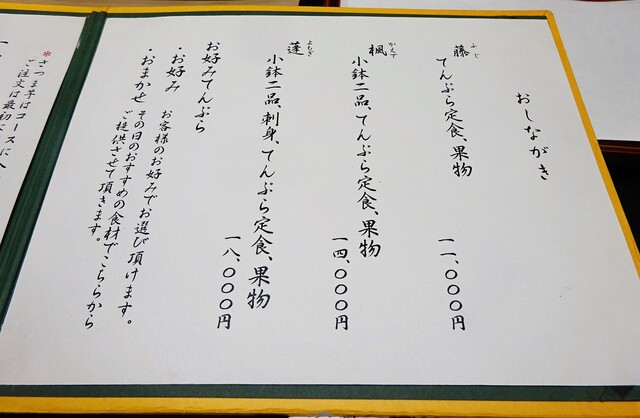 おしながき
藤 ふじ
てんぷら定食、果物
一一、〇〇〇円
楓 かえで
小鉢二品、てんぷら定食、果物
一四、〇〇〇円
蓬 よもぎ
小鉢二品、刺身、てんぷら定食、果物
一八、〇〇〇円
お好みてんぷら
・お好み お客様のお好みでお選び頂けます。
・おまかせ その日のおすすめの食材でこちらから
ご提供させて頂きます。
*さつま芋はコースに
ご注文は最初